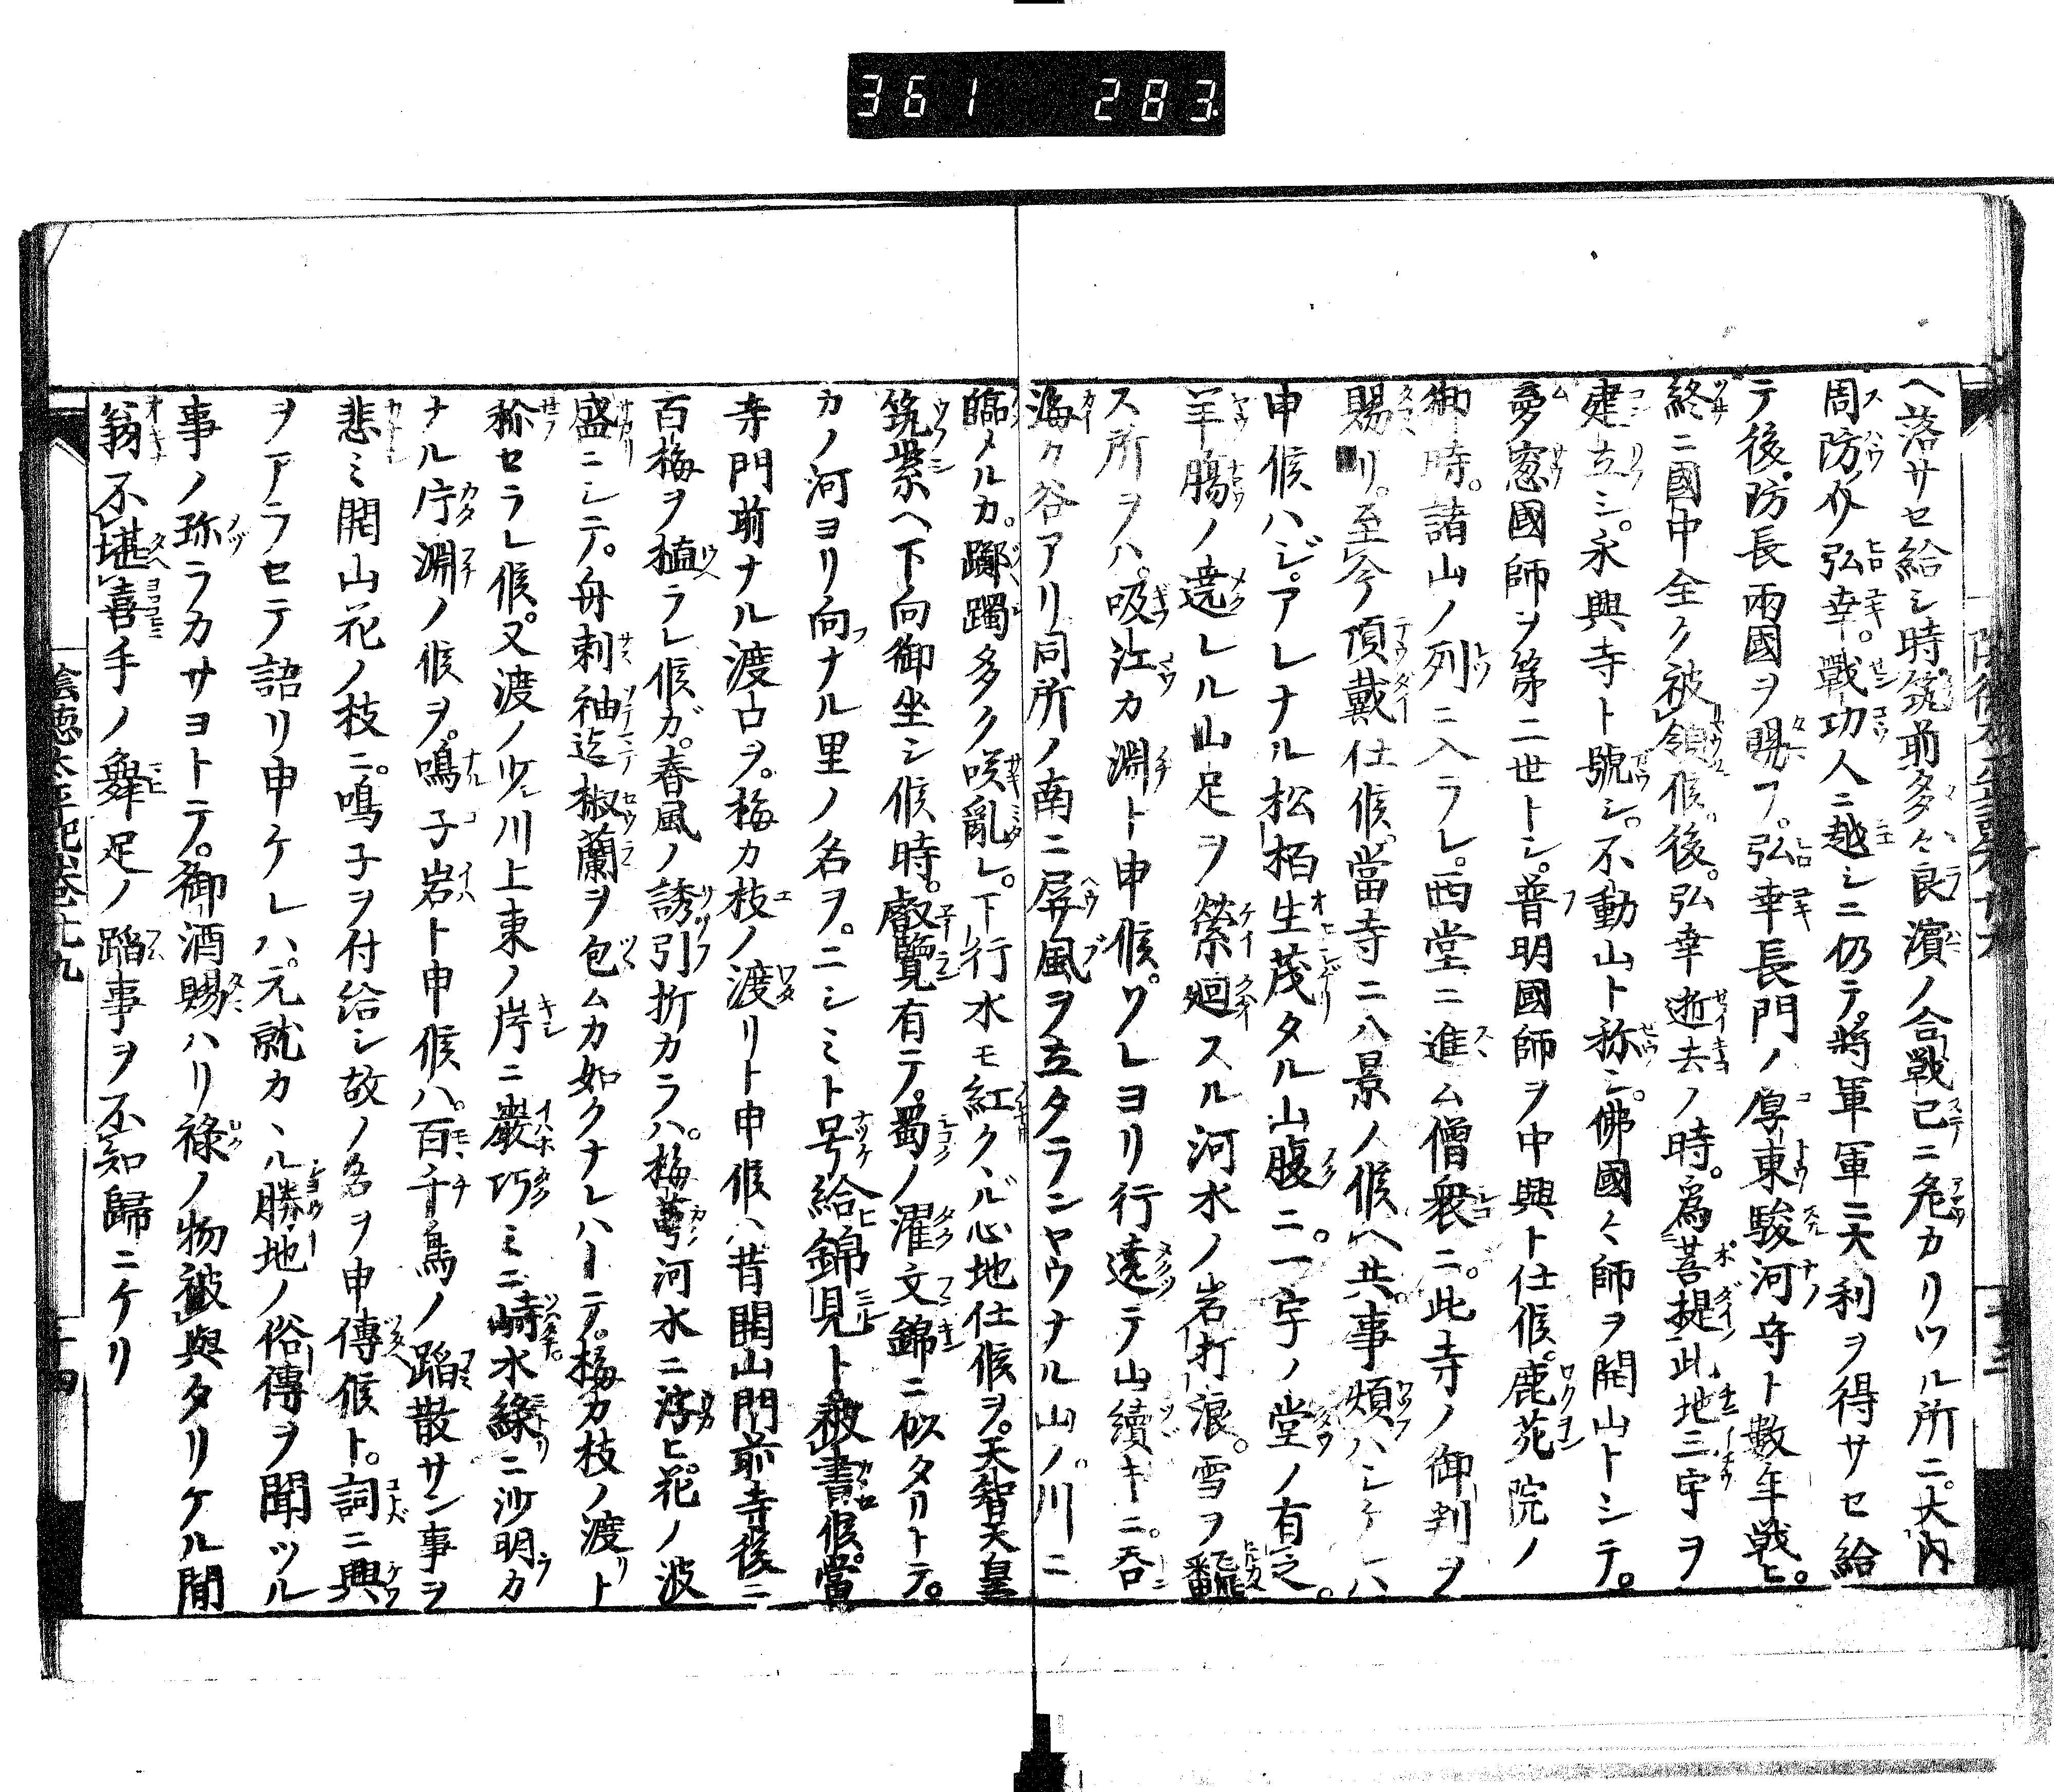 361 283
ヘ落サセ給シ時。筑前多々良濵ノ合戰已ニ危カリツル所ニ。大内
周防ノ介弘幸。戰功人ニ越シニ仍テ。將軍軍ニ大利ヲ得サセ給
テ後。防長兩國ヲ賜フ。弘幸長門ノ厚東駿河守ト數年戰ヒ。
終ニ國中全ク被領候。後。弘幸逝去ノ時。爲菩提此地三宇ヲ
建立シ。永興寺ト號シ。不動山ト称シ。佛國々師ヲ開山トシテ。
夢窓國師ヲ第二世トシ。普明國師ヲ中興ト仕候。鹿苑院ノ
御時。諸山ノ列ニ入ラレ。西堂ニ進ム僧衆ニ。此寺ノ御判ヲ
賜リ。至今頂戴仕候。當寺ニ八景ノ候ヘ共。事煩ハシケハ
申候ハジ。アレナル松栢生茂タル山腹ニ。一宇ノ堂ノ有之。
羊膓ノ遶レル山足ヲ縈廻スル河水ノ岩打浪。雪ヲ飜
ス所ヲハ。吸江カ淵ト申候。ソレヨリ行遶テ山續キニ。吞
海カ谷アリ同所ノ南ニ屏風ヲ立タランヤウナル山ノ。川ニ
臨メルカ。躑躅多ク咲亂レ。下行水モ紅クヽル心地仕候ヲ。天智天皇
筑紫ヘ下向御坐シ候時。叡覽有テ。蜀ノ濯文錦ニ似タリトテ。
カノ河ヨリ向ナル里ノ名ヲ。ニシミト号給ヒ錦見ト被書候。當
寺門前ナル渡口ヲ。梅カ枝ノ渡リト申候ハ昔開山門前寺後ニ
百梅ヲ植ラレ候ガ。春風ノ誘引折カラハ。梅蕚河水ニ浮ヒ。花ノ波
盛ニシテ。舟刺袖迄椒蘭ヲ包ムカ如クナレハトテ。梅カ枝ノ渡リト
称セラレ候。又渡ノ少シ川上東ノ岸ニ巖巧ミニ峙水綠ニ沙明カ
ナル片淵ノ候ヲ。鳴子岩ト申候ハ。百千鳥ノ蹈散サン事ヲ
悲ミ開山花ノ枝ニ。鳴子ヲ付給シ故ノ名ヲ申傳候ト。詞ニ興
ヲアラセテ語リ申ケレハ。元就カヽル勝地ノ俗傳ヲ聞ツル
事ノ珎ラカサヨトテ。御酒賜ハリ祿ノ物被與タリケル間
翁不堪喜手ノ舞足ノ蹈事ヲ不知歸ニケリ
陰德太平記卷十九
十四